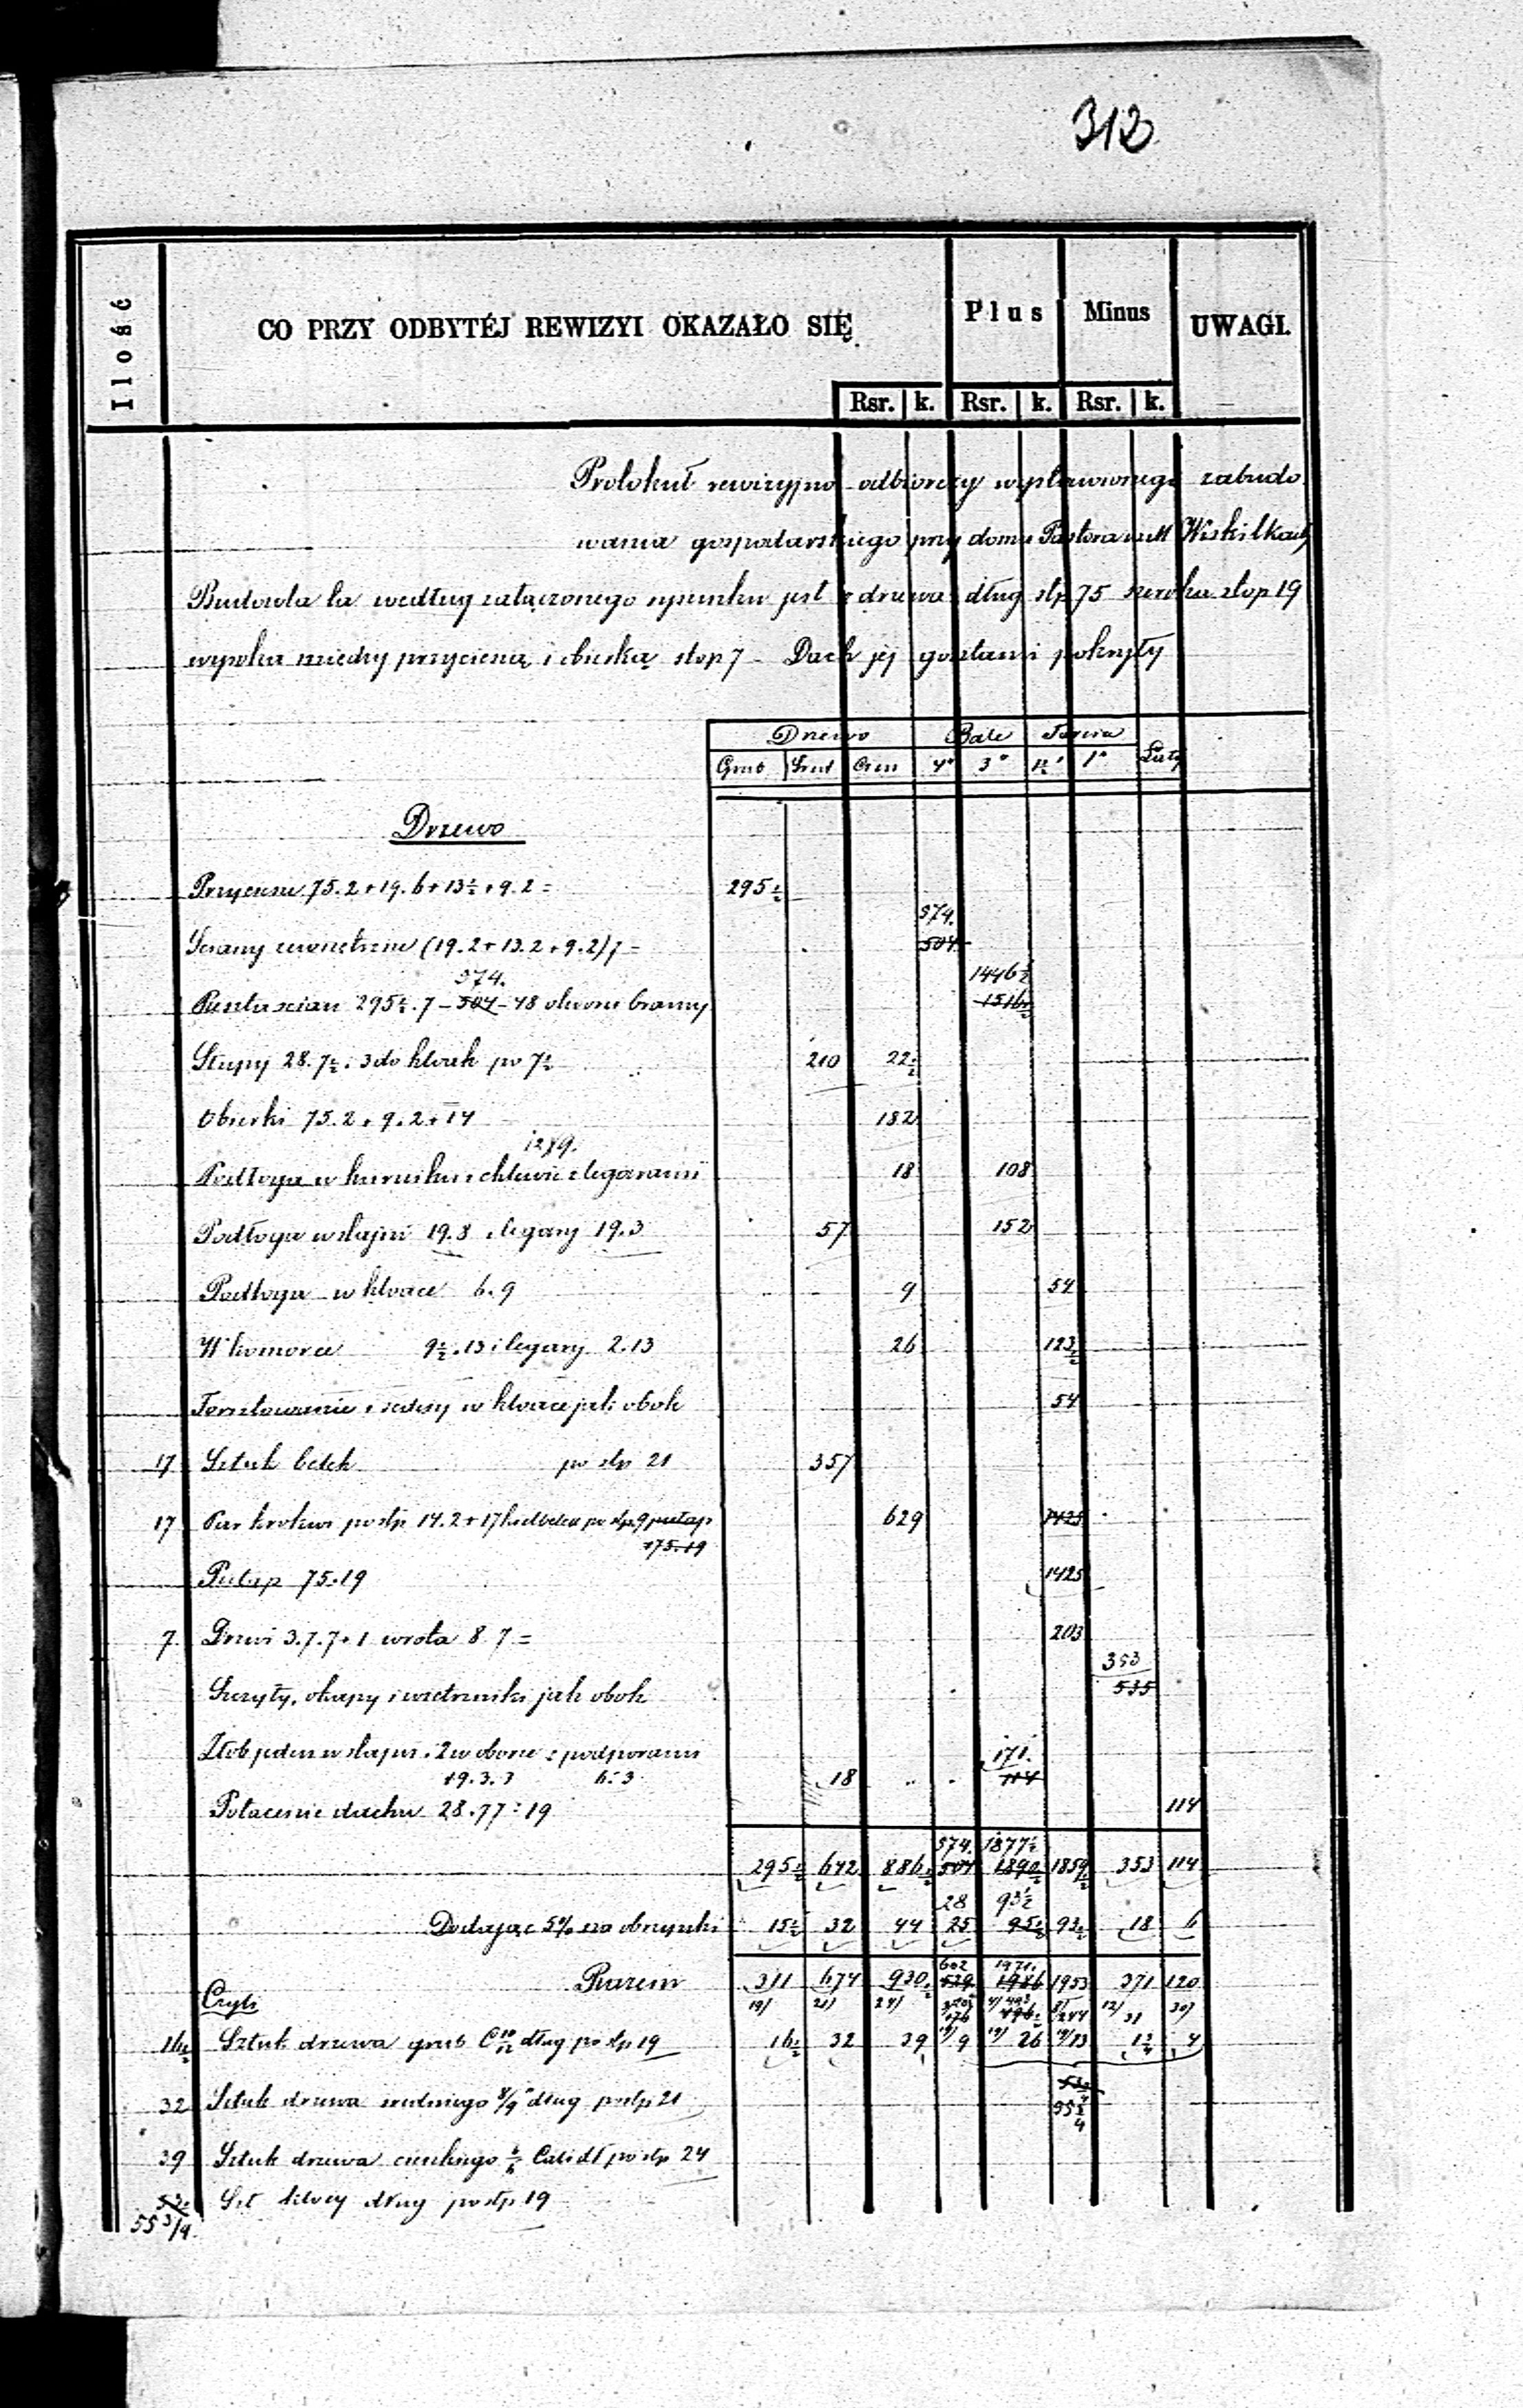 312
Ilość
CO PRZY ODBYTÉJ REWIZYI OKAZAŁO SIĘ.
Plus Minus UWAGI.
Rsr. k. Rsr. k. Rsr. k.
Protokuł rewizyjno odbiorczy wystawionego zabudo
wania gospodarskiego przy domu Pastora w Wiskitkach
Budowla ta według załączonego rysunku jest z drzewa dług stp 75 szeroka stop 19
wysoka między przycieśią i obieską stop 7 - Dach jej gontami pokryty
Drzewo Bale Tarcica Łaty
Grub Śred Cien 4" 3" 1½" 1"
Drzewo
Przyciesie 75.2+19.6+13½+9.2= 295½
574.
Sciany zewnetrzne (19.2+13.2+9.2)7= 504
574. 1446½
Reszta scian 295½.7-504-48 otwory bramy 1516½
Słupy 28.7½ i 3 do kloak po 7½ 210 22½
Obierki 75.2+9.2+14 182
12.9.
Podłoga w kurniku i chlewie z legarami 18 108
Podłoga w stajni 19.8 i legary 19.3 57 152
Podłoga w kloace 6.9 9 54
W komorce 9½.13 i legary 2.13 26 123½
Forsztowanie i sedesy w kloace jak obok 54
17 Sztuk belek po stp 21 357
17 Par krokwi po stp 14.2+17 po stp 9 pułap 629 1425
75.19
Pułap 75.19 1425
7 Drzwi 3.7.7+1 wrota 8.7= 203
353
Szczyty, okapy i wietrzniki jak obok 535
Żłób jeden w stajni i 2 w oborze z podporami 171.
19.3.3 6.3 18 114
Połacenie dachu 28.77:19 114
574. 1877½
295½ 642 886½ 504 1890½ 1859½ 353 114
28 93½
Dodając 5% na obrzynki 15½ 32 44 25 95½ 93½ 18 6
602 1971.
Razem 311 674 930½ 529 1986 1953 371 120
Czyli 19/ 21/ 24/ 4/493 8/244 12/31 30/
16½ Sztuk drzewa grub C 10/12 dług po stp 19 16½ 32 39 19/9 19/26 19/13 1¾ 4
32 Sztuk drzewa sredniego 8/9" dług po stp 21
39 Sztuk drzewa cienkiego Cali dł po stp 24
53½ Szt dług po stp 19
55 3/4.